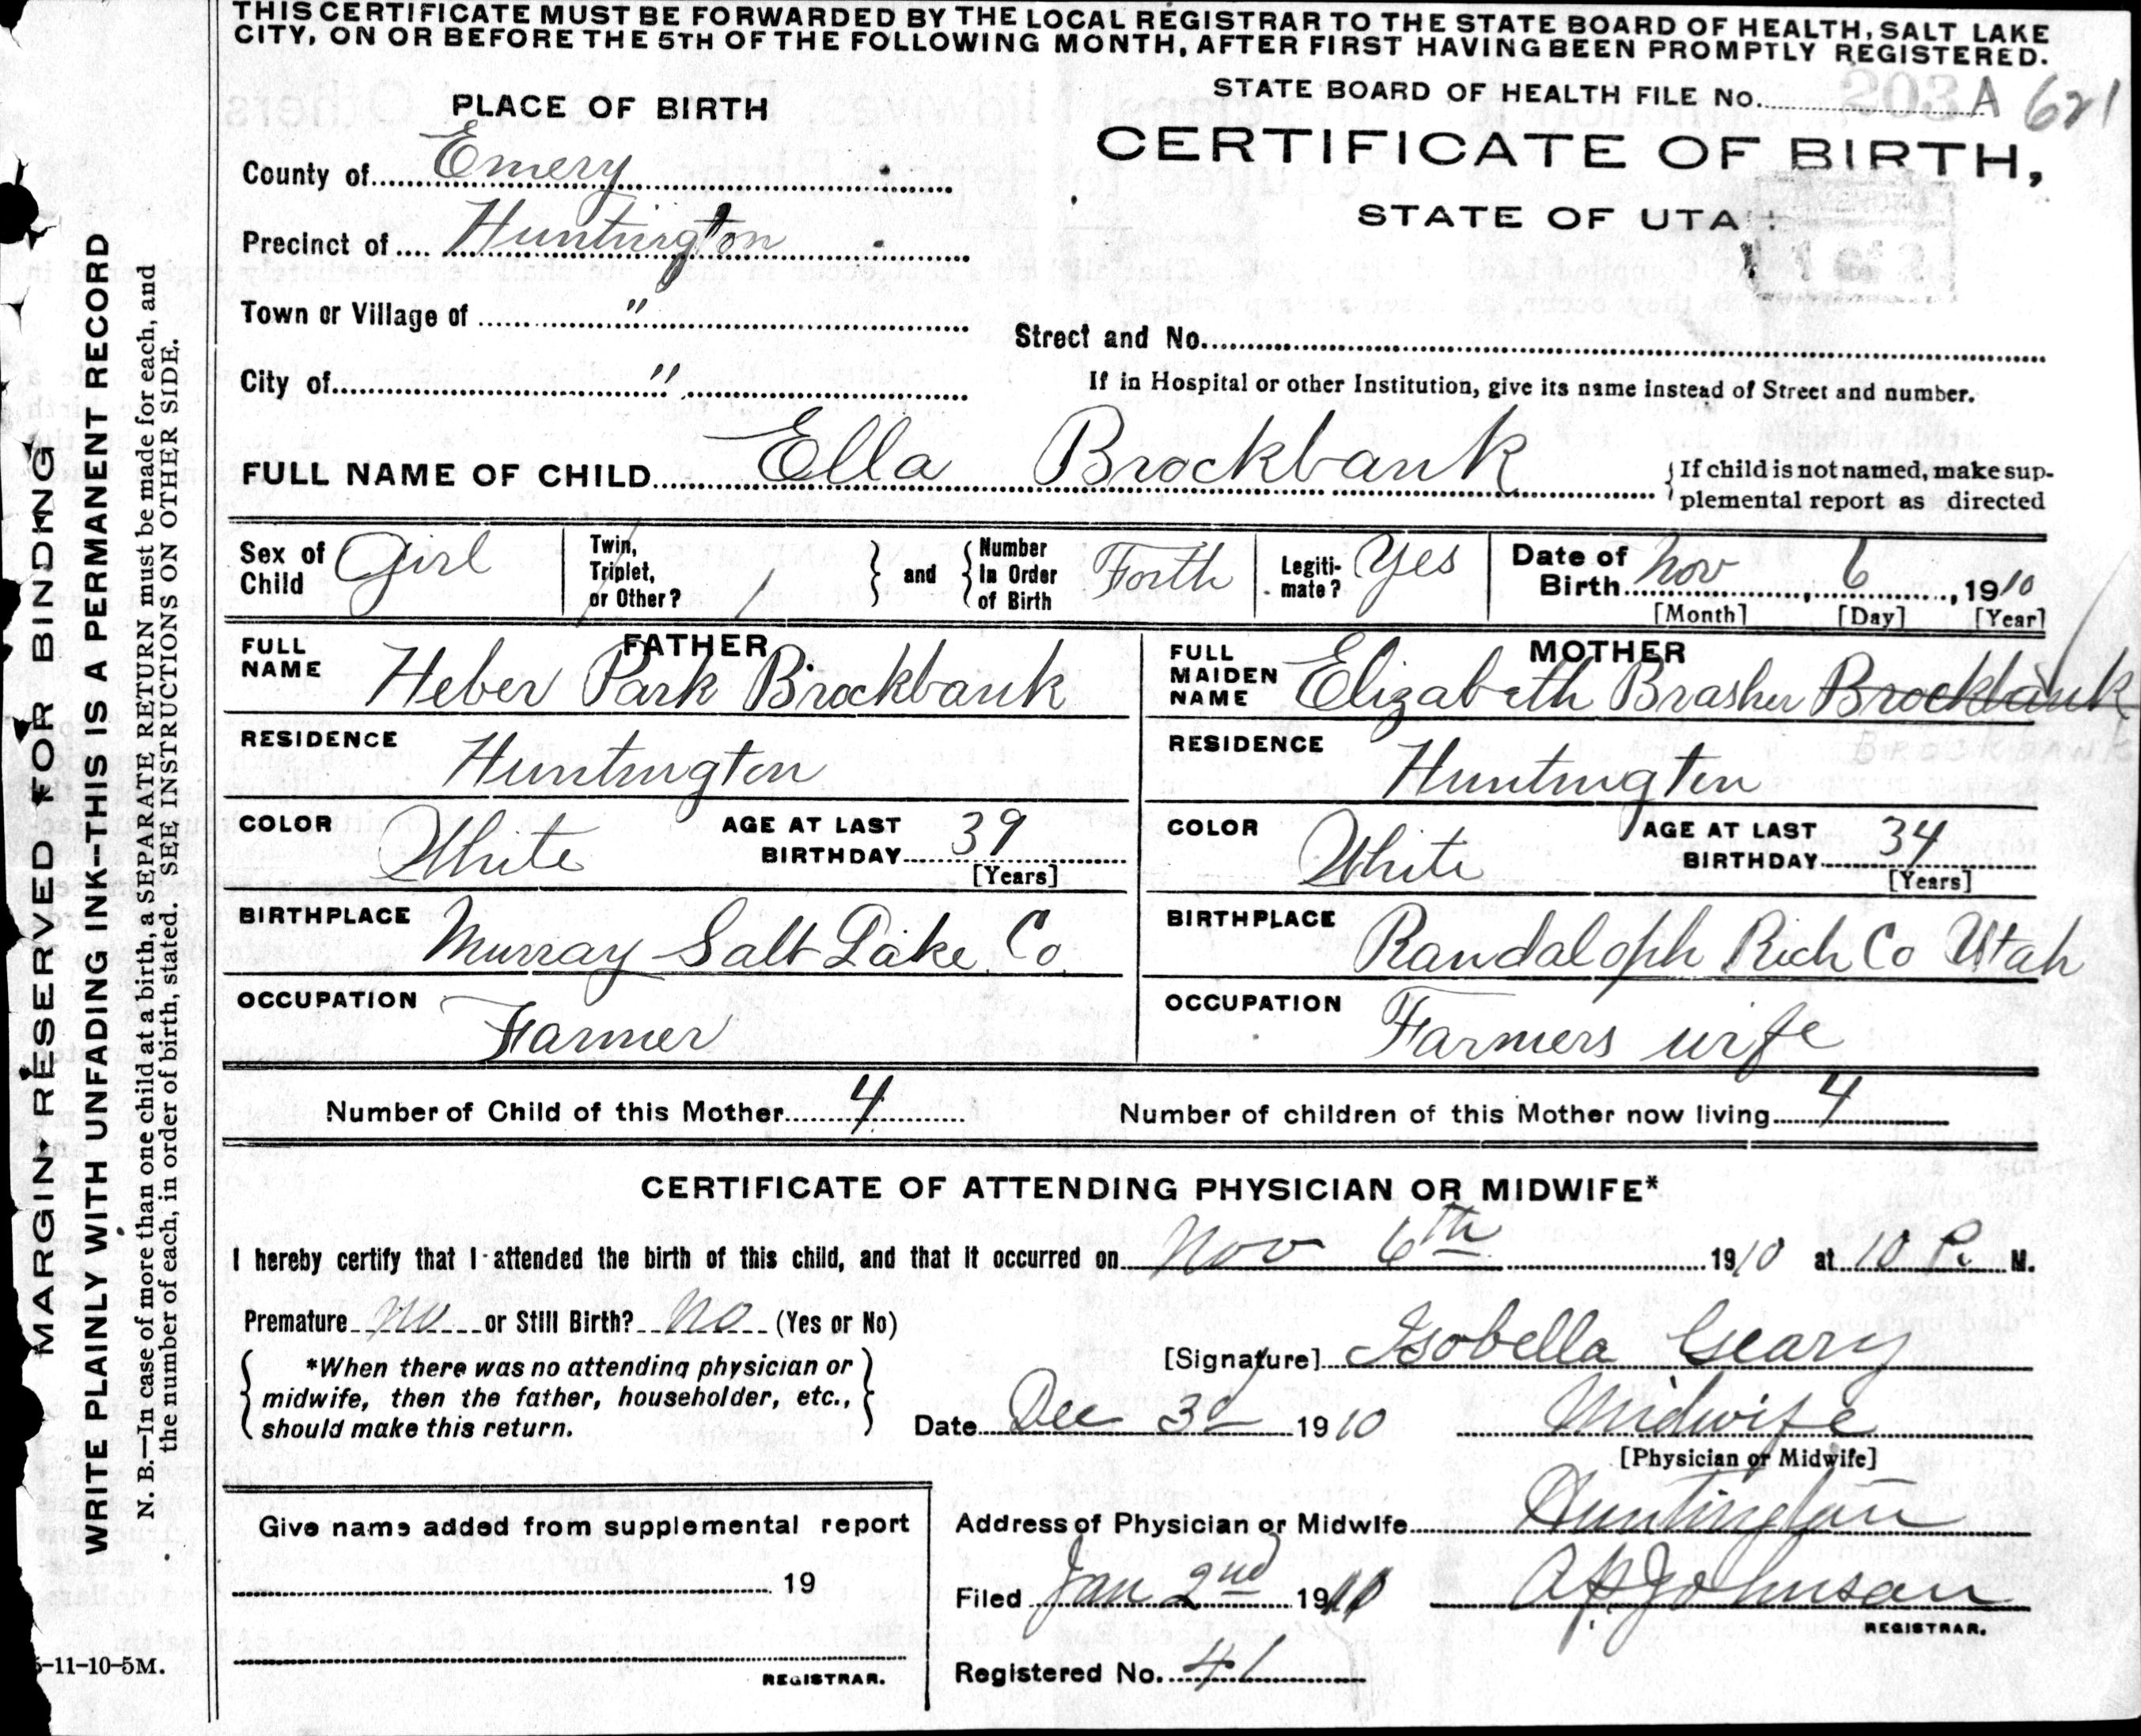 THIS CERTIFICATE MUST BE FORWARDED BY THE LOCAL REGISTRAR TO THE STATE BOARD OF HEALTH, SALT LAKE
CITY, ON OR BEFORE THE 5TH OF THE FOLLOWING MONTH, AFTER FIRST HAVING BEEN PROMPTLY REGISTERED.
STATE BOARD OF HEALTH FILE No. 203 A 621
PLACE OF BIRTH
CERTIFICATE OF BIRTH,
STATE OF UTAH
County of Emery
Precinct of Huntington
Town or Village of "
Street and No.
City of "
If in Hospital or other Institution, give its name instead of Street and number.
FULL NAME OF CHILD Ella Brockbank
{ If child is not named, make sup-
plemental report as directed
Sex of Child Girl
Twin, Triplet, or Other? / } and { Number In Order of Birth Forth
Legiti-mate? Yes
Date of Birth Nov 6, 1910
[Month] [Day] [Year]
FATHER
FULL NAME Heber Park Brockbank
RESIDENCE Huntington
COLOR White AGE AT LAST BIRTHDAY 39
[Years]
BIRTHPLACE Murray Salt Lake Co
OCCUPATION Farmer
MOTHER
FULL MAIDEN NAME Elizabeth Brasher Brockbank
RESIDENCE Huntington
COLOR White AGE AT LAST BIRTHDAY 34
[Years]
BIRTHPLACE Randaloph Rich Co Utah
OCCUPATION Farmers wife
Number of Child of this Mother 4 Number of children of this Mother now living 4
CERTIFICATE OF ATTENDING PHYSICIAN OR MIDWIFE*
I hereby certify that I attended the birth of this child, and that it occurred on Nov 6th 1910 at 10 P. M.
Premature no or Still Birth? no (Yes or No)
{ *When there was no attending physician or
midwife, then the father, householder, etc.,
should make this return. }
[Signature] Isobella Geary
Date Dec 3d 1910 Midwife
[Physician or Midwife]
Give name added from supplemental report
19
REGISTRAR.
Address of Physician or Midwife Huntington
Filed Jan 2nd 1911 A P Johnson
REGISTRAR.
Registered No. 41
MARGIN RESERVED FOR BINDING
WRITE PLAINLY WITH UNFADING INK--THIS IS A PERMANENT RECORD
N. B.—In case of more than one child at a birth, a SEPARATE RETURN must be made for each, and
the number of each, in order of birth, stated. SEE INSTRUCTIONS ON OTHER SIDE.
-11-10-5M.